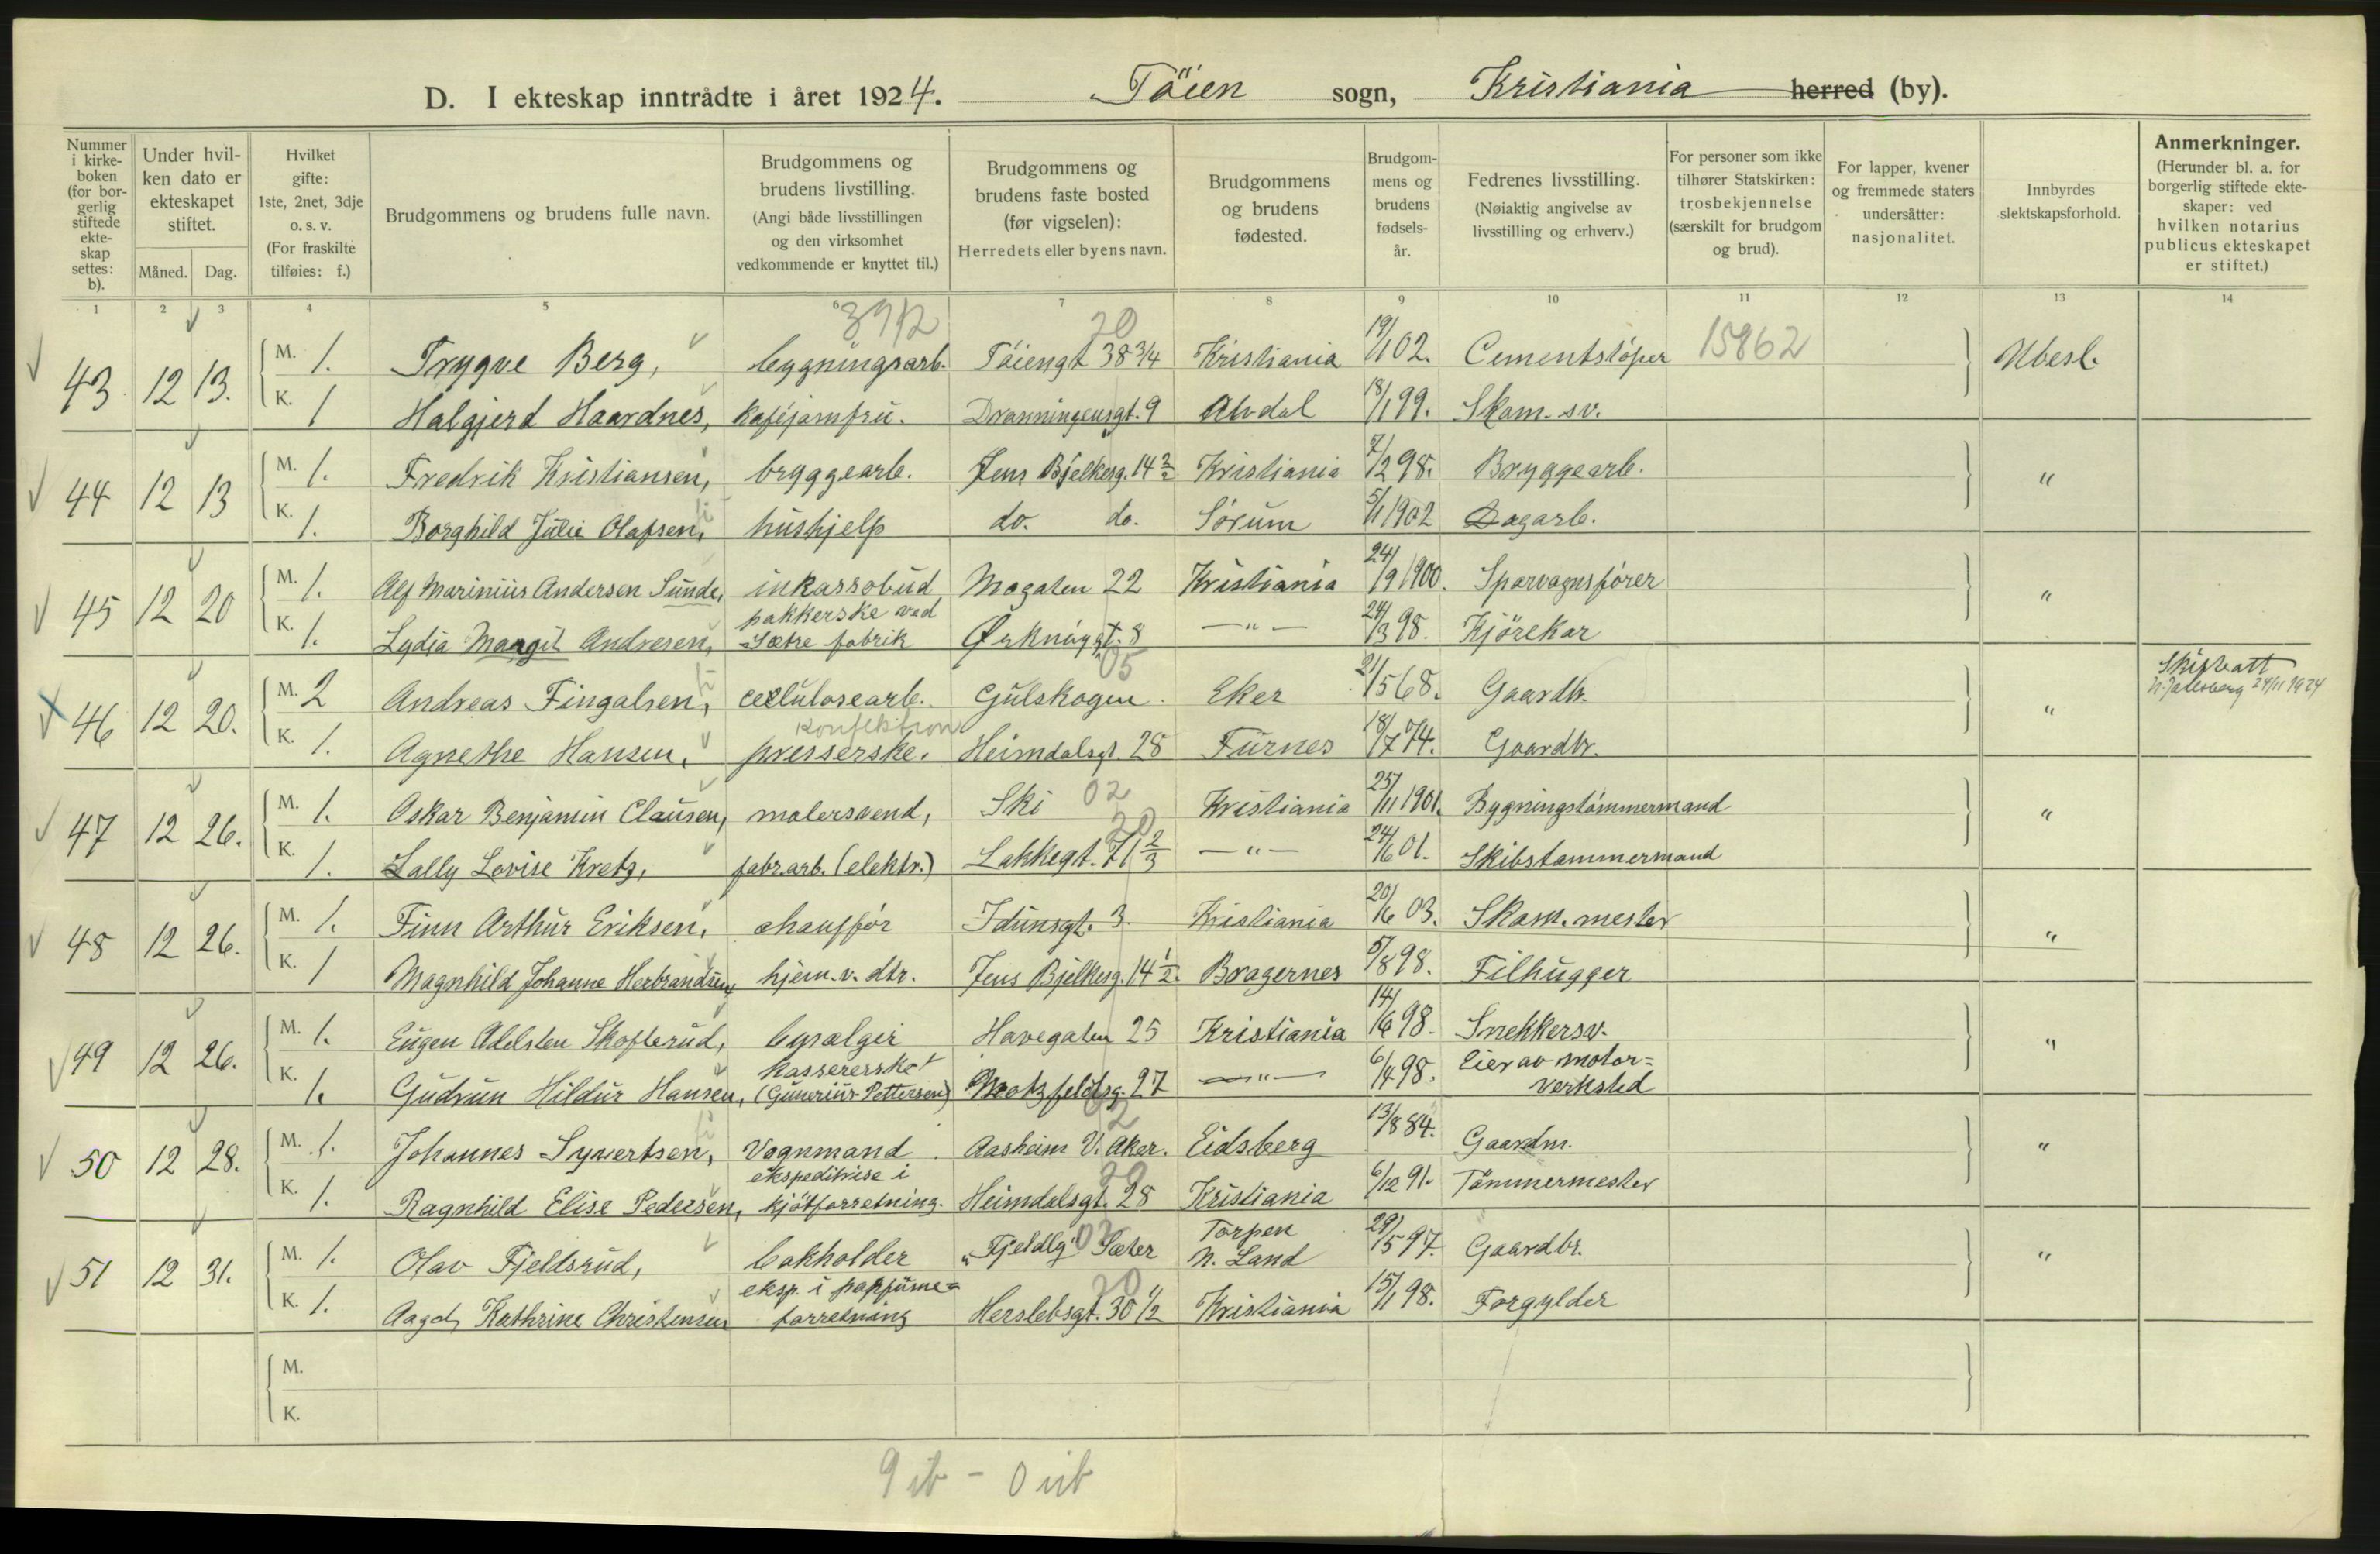 D. I ekteskap inntrådte i året 1924. Töien sogn, Kristiania herred (by).
Nummer i kirkeboken (for borgerlig stiftede ekteskap settes: b).
Under hvilken dato er ekteskapet stiftet.
Måned. Dag.
Hvilket gifte: 1ste, 2net, 3dje o. s. v. (For fraskilte tilføies: f.)
Brudgommens og brudens fulle navn.
Brudgommens og brudens livstilling. (Angi både livsstillingen og den virksomhet vedkommende er knyttet til.)
Brudgommens og brudens faste bosted (før vigselen): Herredets eller byens navn.
Brudgommens og brudens fødested.
Brudgommens og brudens fødselsår.
Fedrenes livsstilling. (Nøiaktig angivelse av livsstilling og erhverv.)
For personer som ikke tilhører Statskirken: trosbekjennelse (særskilt for brudgom og brud).
For lapper, kvener og fremmede staters undersåtter: nasjonalitet.
Innbyrdes slektskapsforhold.
Anmerkninger. (Herunder bl. a. for borgerlig stiftede ekteskaper: ved hvilken notarius publicus ekteskapet er stiftet.)
1 2 3 4 5 6 7 8 9 10 11 12 13 14
3912 20
43 12 13. M. 1. Trygve Berg, bygningsarb. Töiengt 38 3/4 Kristiania 19/1 02. Cementstöper 15862 Ubesl.
K. 1 Halgjerd Haardnes, kaféjomfru. Dronningensgt. 9 Alvdal 18/1 99. Skom. sv.
44 12 13 M. 1. Fredrik Kristiansen, bryggearb. Jens Bjelkesg. 14 2/2 Kristiania 7/2 98. Bryggearb. "
K. 1. Borghild Julie Olafsen, hushjelp do. do. Sörum 5/1 1902 Dagarb.
45 12 20 M. 1. Alf Marinius Andersen Sunde, inkassobud Mogaten 22 Kristiania 24/9 1900. Sporvognsförer "
K. 1. Lydia Margit Andresen, pakkerske ved Sætre fabrik Örknöygt. 8 — " — 24/3 98. Kjörekar
05
46 12 20. M. 2 Andreas Fingalsen, cellulosearb. Gulskogen. Eker 21/5 68. Gaardbr. " Skifteatt N. Jarlsberg 24/11 1924
K. 1. Agnethe Hansen, konfektion presserske. Heimdalsgt. 28 Furnes 18/7 74. Gaardbr.
47 12 26. M. 1. Oskar Benjamin Clausen, malersvend, Ski 02 Kristiania 25/11 1901. Bygningstömmermand "
K. 1. Lally Lovise Kretz, fabr.arb. (elektr.) Lakkegt. 71 2/3 20 — " — 24/6 01. Skibstømmermand
48 12 26. M. 1. Finn Arthur Eriksen, chaufför Idunsgt. 3 Kristiania 20/6 03. Skom. mester "
K. 1 Magnhild Johanne Herbrandsen, hjem. v. dtr. Jens Bjelkesg. 14 1/2. Bragernes 5/8 98. Filhugger
49 12 26. M. 1. Eugen Adelsten Skofterud, bysælger Havegaten 25 Kristiania 14/6 98. Snekkersv. "
K. 1. Gudrun Hildur Hansen, kassererske (Gunerius Pettersen) Motzfeldtsg. 27 — " — 6/4 98. Eier av motor=verksted
02
50 12 28. M. 1. Johannes Syvertsen, Vognmand Aasheim V. Aker. Eidsberg 13/8 84. Gaardm. "
K. 1. Ragnhild Elise Pedersen, ekspeditrise i kjötforretning. Heimdalsgt. 28 20 Kristiania 6/12 91. Tömmermester
51 12 31. M. 1. Olav Fjeldsrud, bokholder "Fjeldlg" Sæter 03 Torpen N. Land 29/5 97. Gaardbr. "
K. 1. Aagot Kathrine Christensen eksp. i parfume=forretning Herslebsgt. 30 1/2 20 Kristiania 15/1 98. Forgylder
M.
K.
9 ib - 0 uib